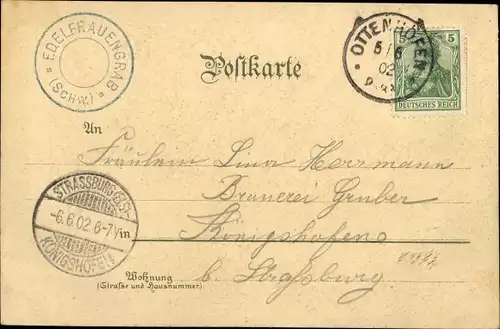 EDELFRAUENGRAB
(SCHW.)
Postkarte
OTTENHÖFEN
5/6
02
5 5
DEUTSCHES REICH
An
Fräulein Lina Herrmann
Brauerei Gruber
STRASSBURG (ELS)
-6.6.02 6-7½
KÖNIGSHOFEN
in
Königshofen
b. Straßburg
Wohnung
(Straße und Hausnummer)